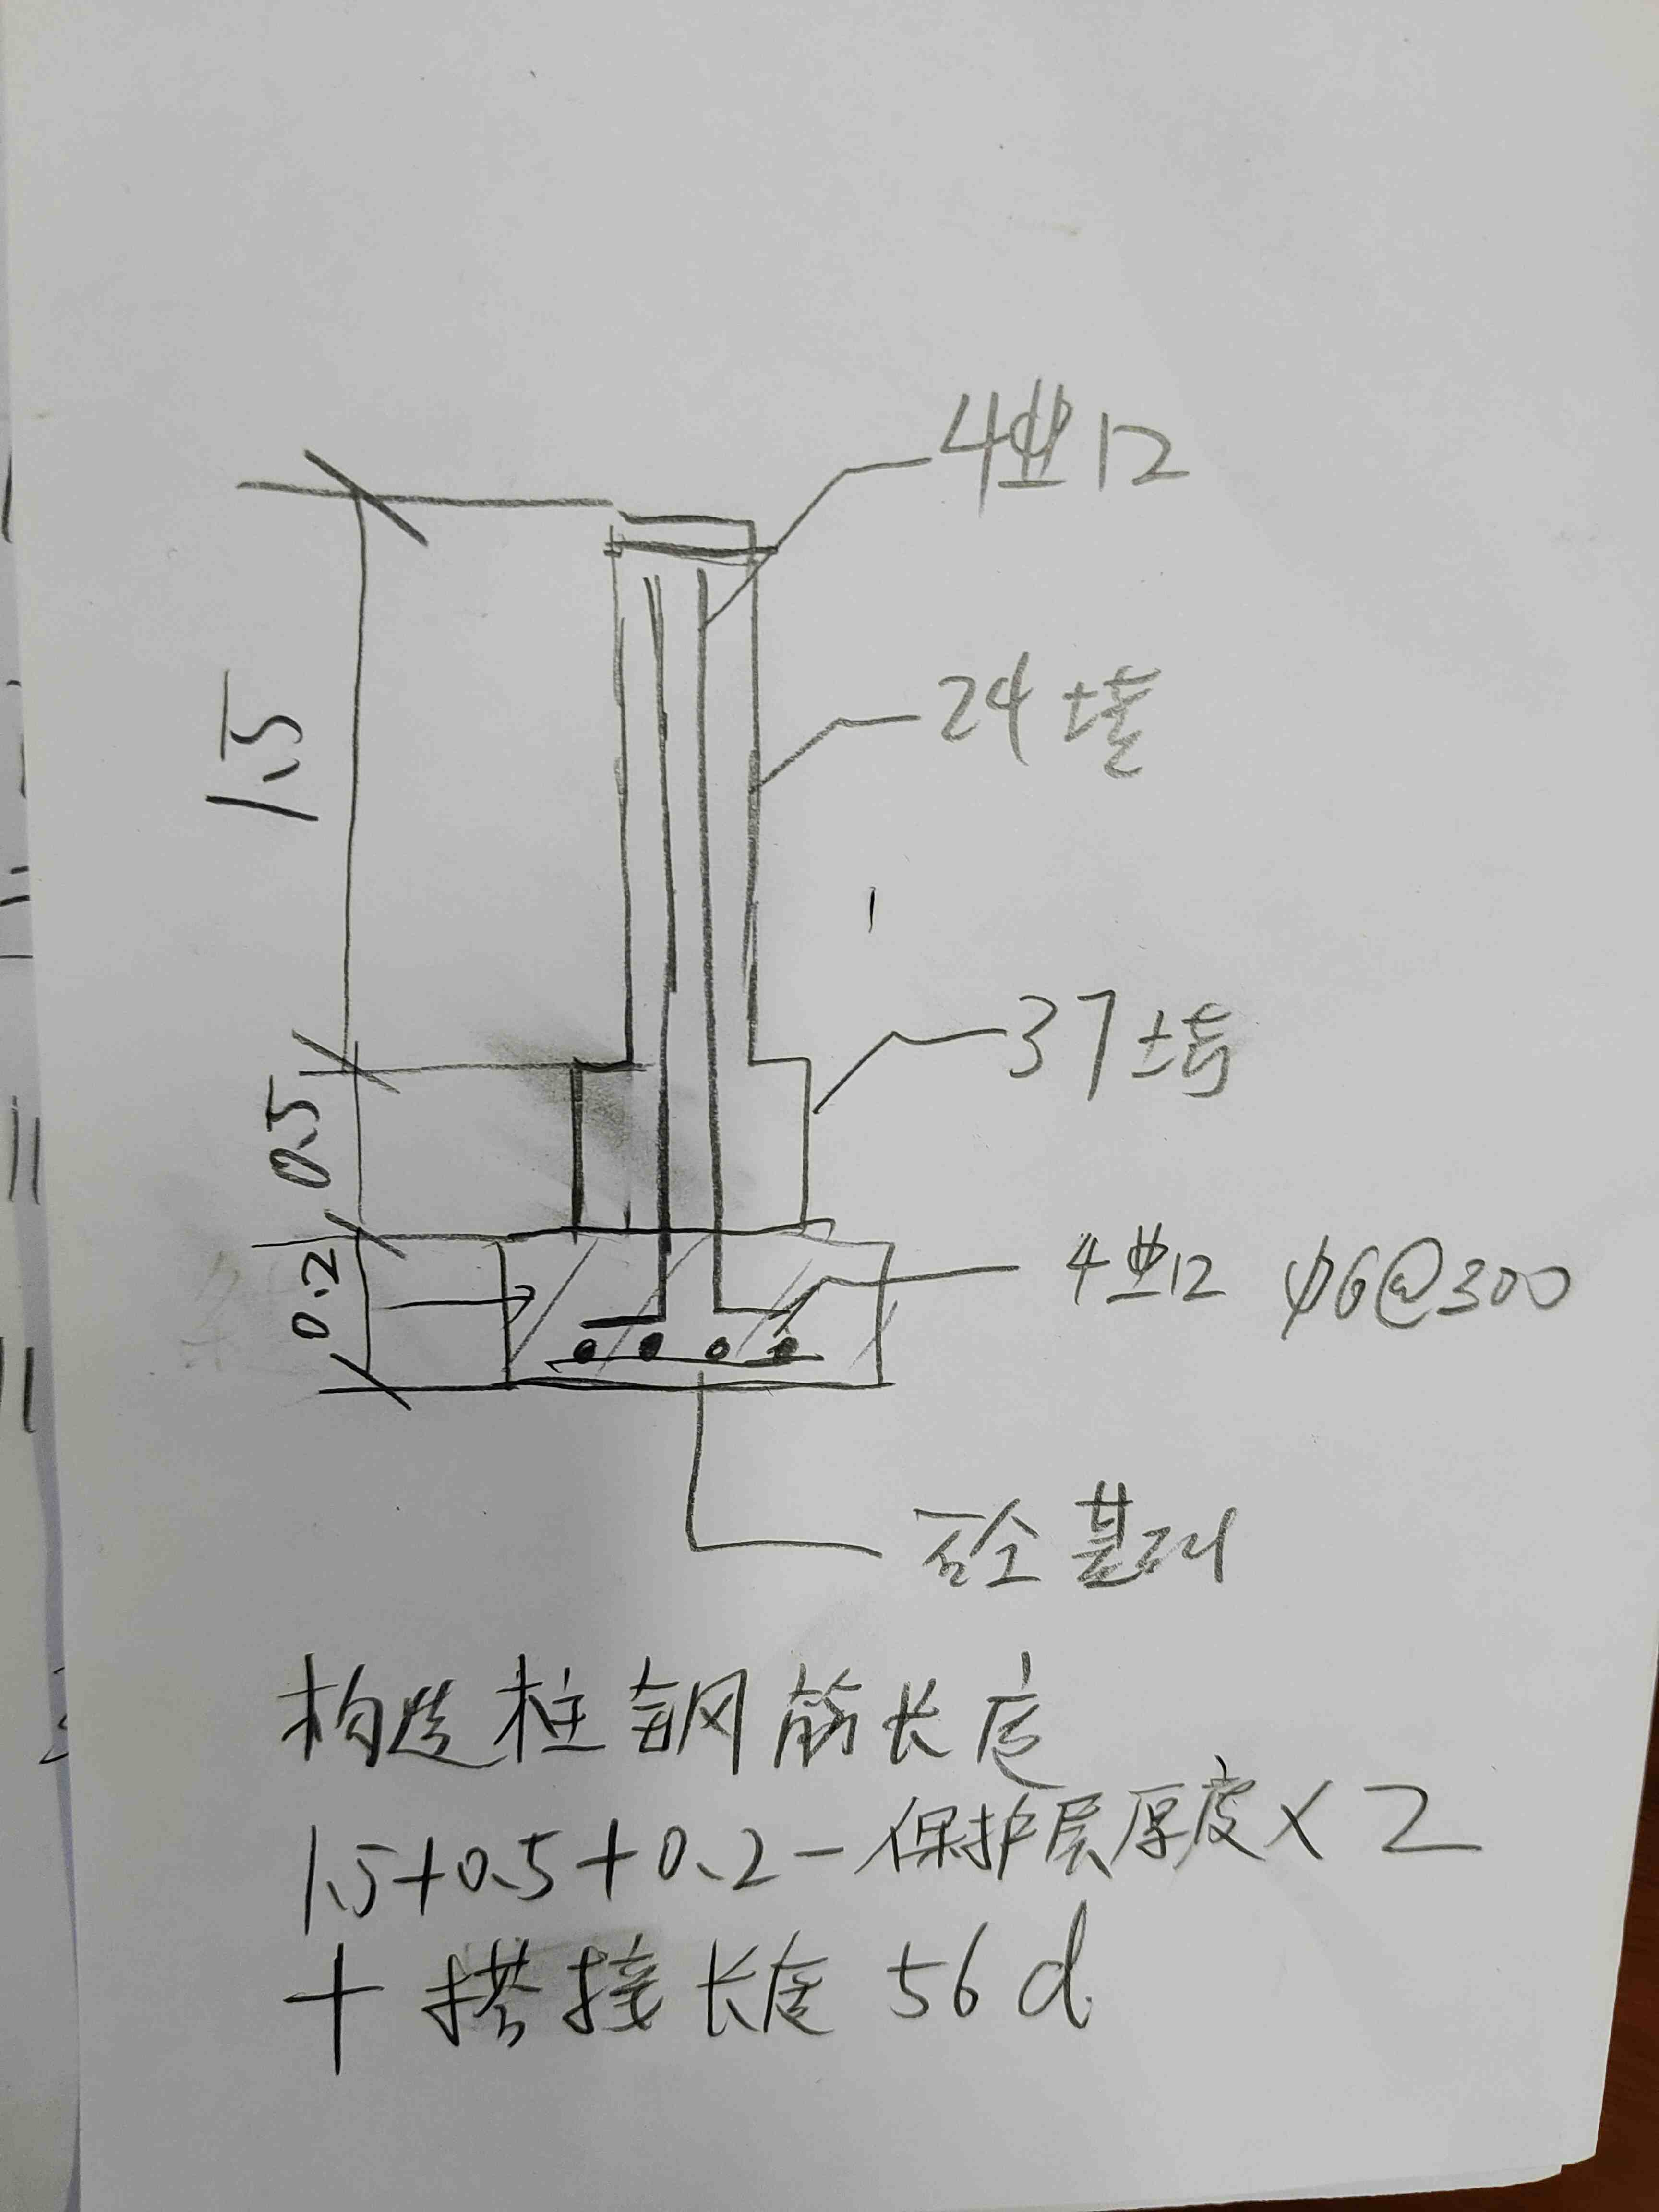 4⌽12
24墙
1.5
37墙
0.5
4⌽12 φ6@300
0.2
砼基础
构造柱钢筋长度
1.5+0.5+0.2-保护层厚度×2
+搭接长度56d